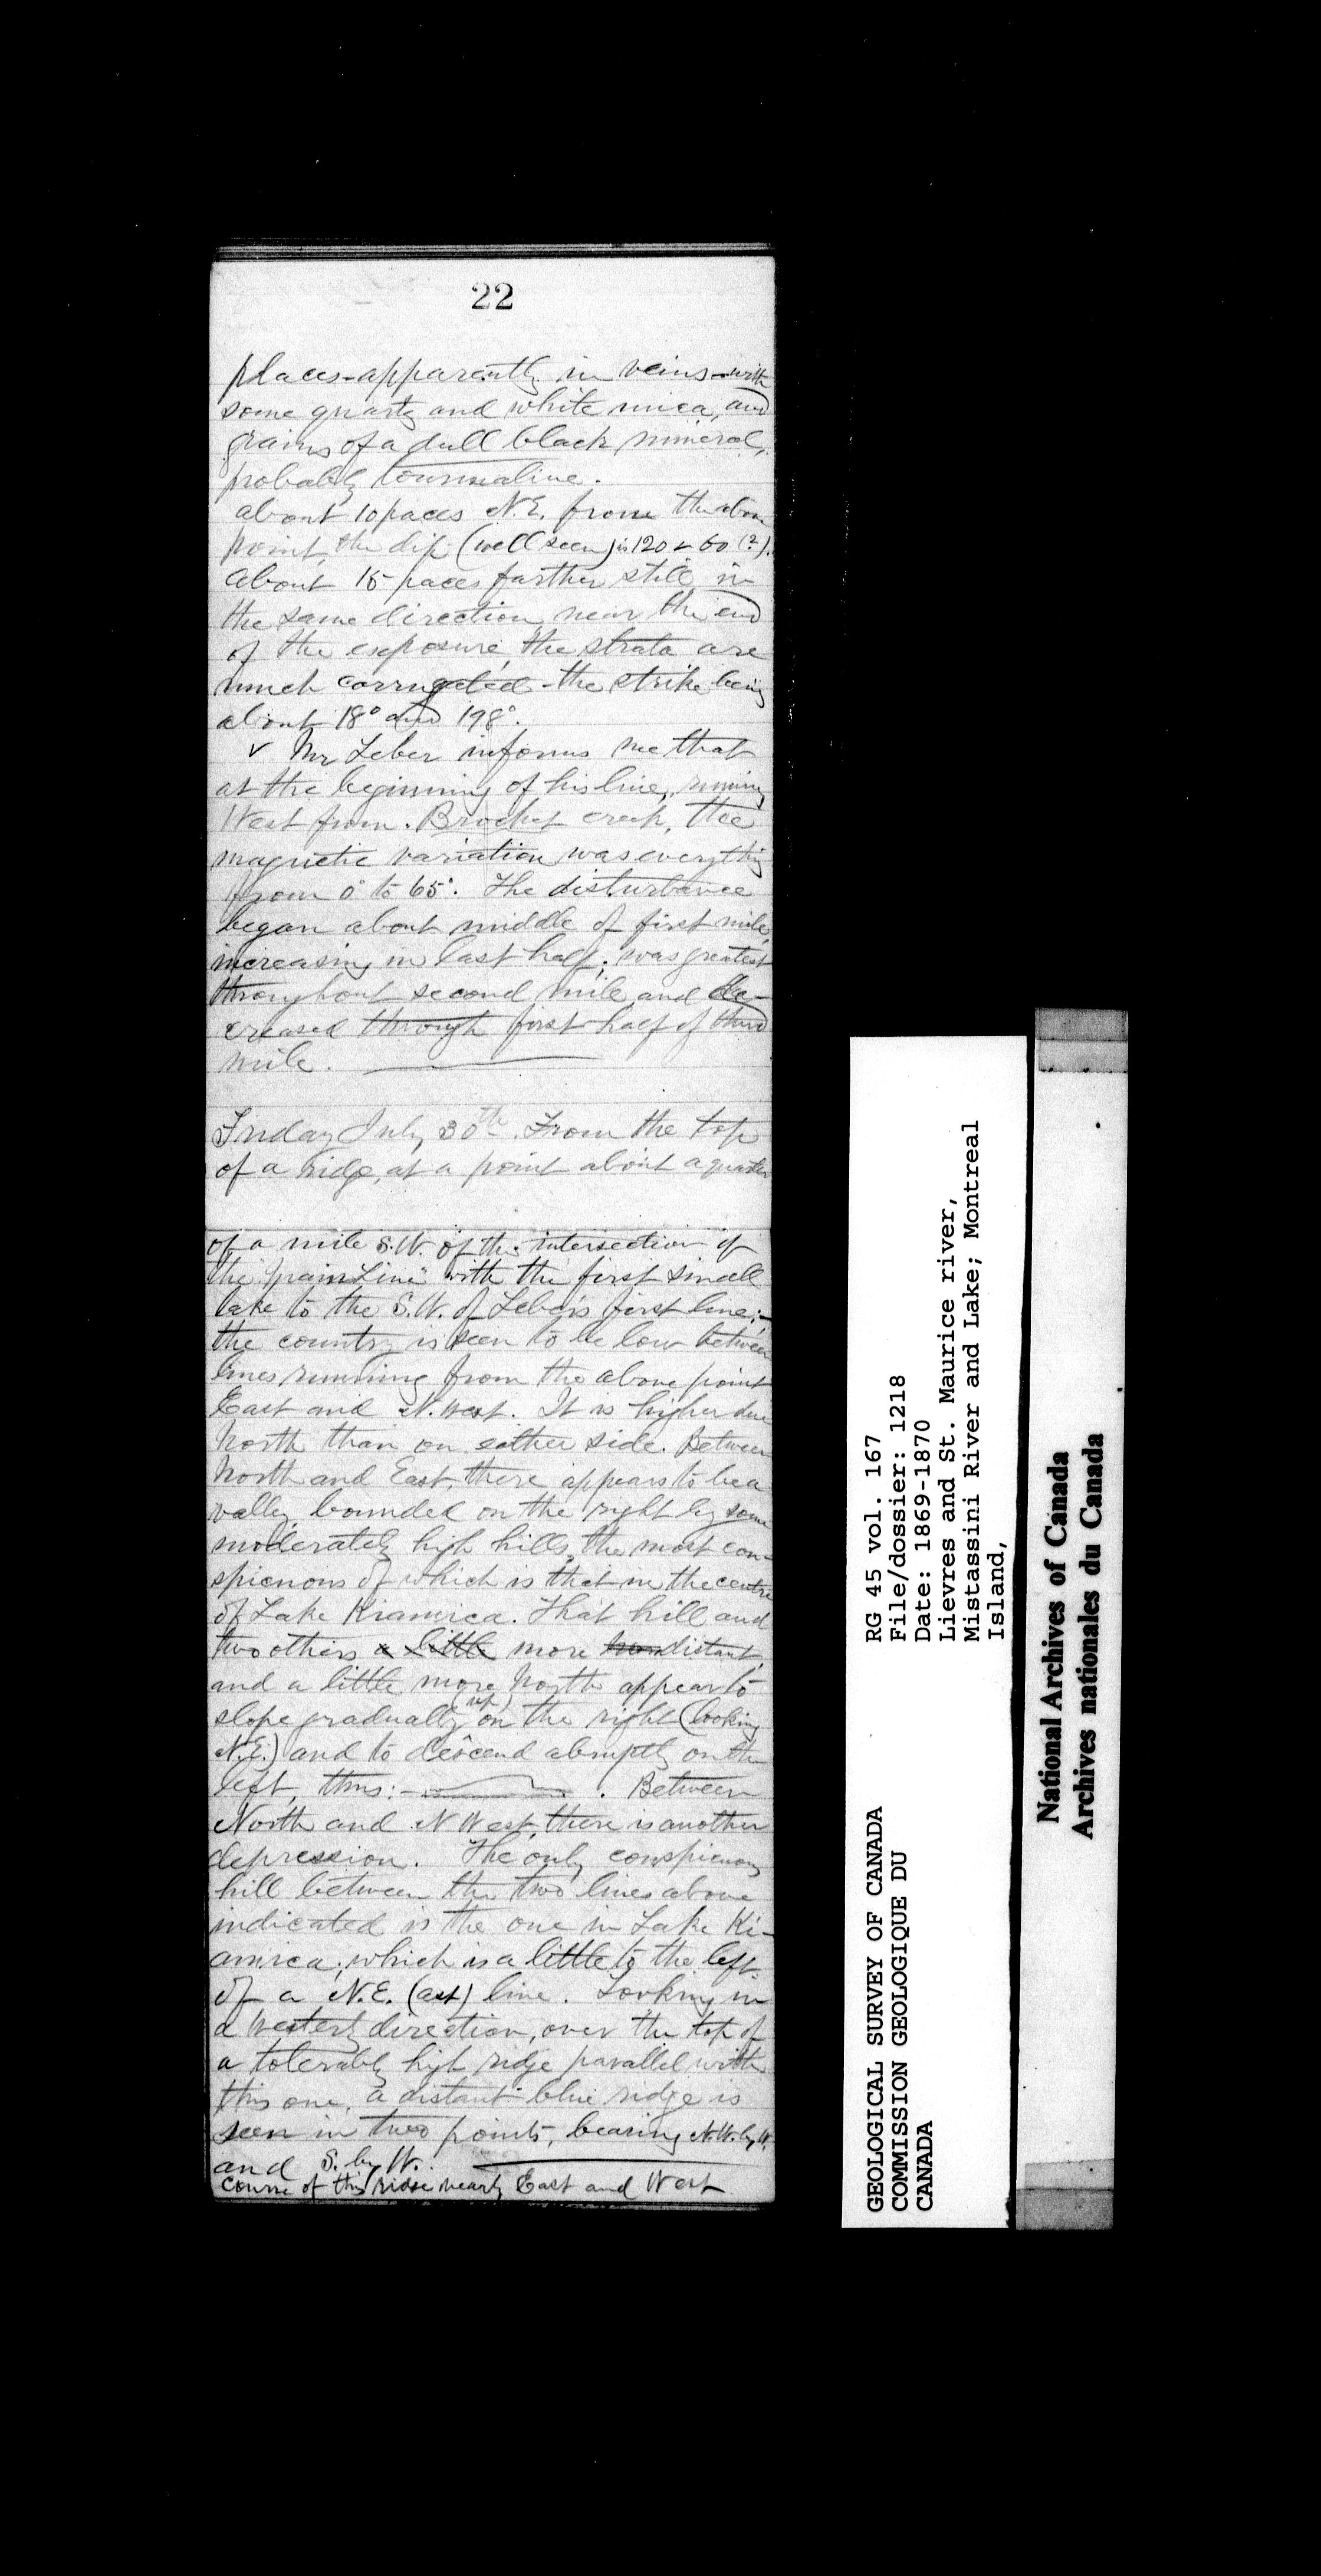 22
places - apparently in veins - with
some quartz and white mica, and
grains of a dull black mineral,
probably tourmaline.
about 10 paces N.E. from the above
point, the dip (well seen) is 120 < 60 (?).
About 15 paces farther still in
the same direction, near the end
of the exposure, the strata are
much corrugated - the strike being
about 18° and 198°.
v Mr Leber informs me that
at the beginning of his line, running
West from Brochet creek, the
magnetic variation was everything
from 0° to 65°. The disturbance
began about middle of first mile,
increasing in last half; was greatest
throughout second mile and de-
creased through first half of third
mile.
Friday July 30th. From the top
of a ridge, at a point about a quarter
of a mile S.W. of the intersection of
the "Line" with the first small
lake to the S.W. of Leber's first line;-
the country is seen to be low between
lines running from the above point
East and N. West. It is higher due
North than on either side. Between
North and East, there appears to be a
valley, bounded on the right by some
moderately high hills, the most con-
spicuous of which is that in the centre
of Lake Kiamica. That hill and
two others a little more distant,
and a little more North appear to
slope gradually (up) on the right (looking
N.E.) and to descend abruptly on the
left, thus:- . Between
North and N West, there is another
depression. The only conspicuous
hill between the two lines above
indicated is the one in Lake Ki-
amica, which is a little to the left
of a N.E. (ast) line. Looking in
a westerly direction, over the top of
a tolerably high ridge parallel with
this one, a distant blue ridge is
seen in two points, bearing N.W. by W.
and S. by W.
course of this ridge nearly East and West
RG 45 vol. 167
File/dossier: 1218
Date: 1869-1870
Lievres and St. Maurice river,
Mistassini River and Lake; Montreal
Island,
GEOLOGICAL SURVEY OF CANADA
COMMISSION GEOLOGIQUE DU
CANADA
National Archives of Canada
Archives nationales du Canada